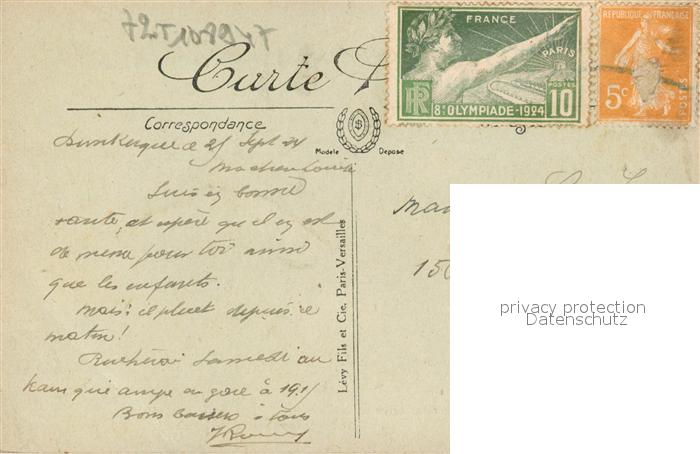 Carte
FRANCE
PARIS
RF
POSTES
10
8e OLYMPIADE - 1924
REPUBLIQUE FRANÇAISE
5c
POSTES
Correspondance
Modèle Déposé
Dunkerque le 25 Sept 24
Ma chère Louise
Suis en bonne
santé, et espère qu'il en est
de même pour toi ainsi
que les enfants.
Mais il pleut depuis ce
matin!
Samedi au
train qui arrive en gare à 19.1
Bons baisers à tous
Lévy Fils et Cie, Paris-Versailles
privacy protection
Datenschutz